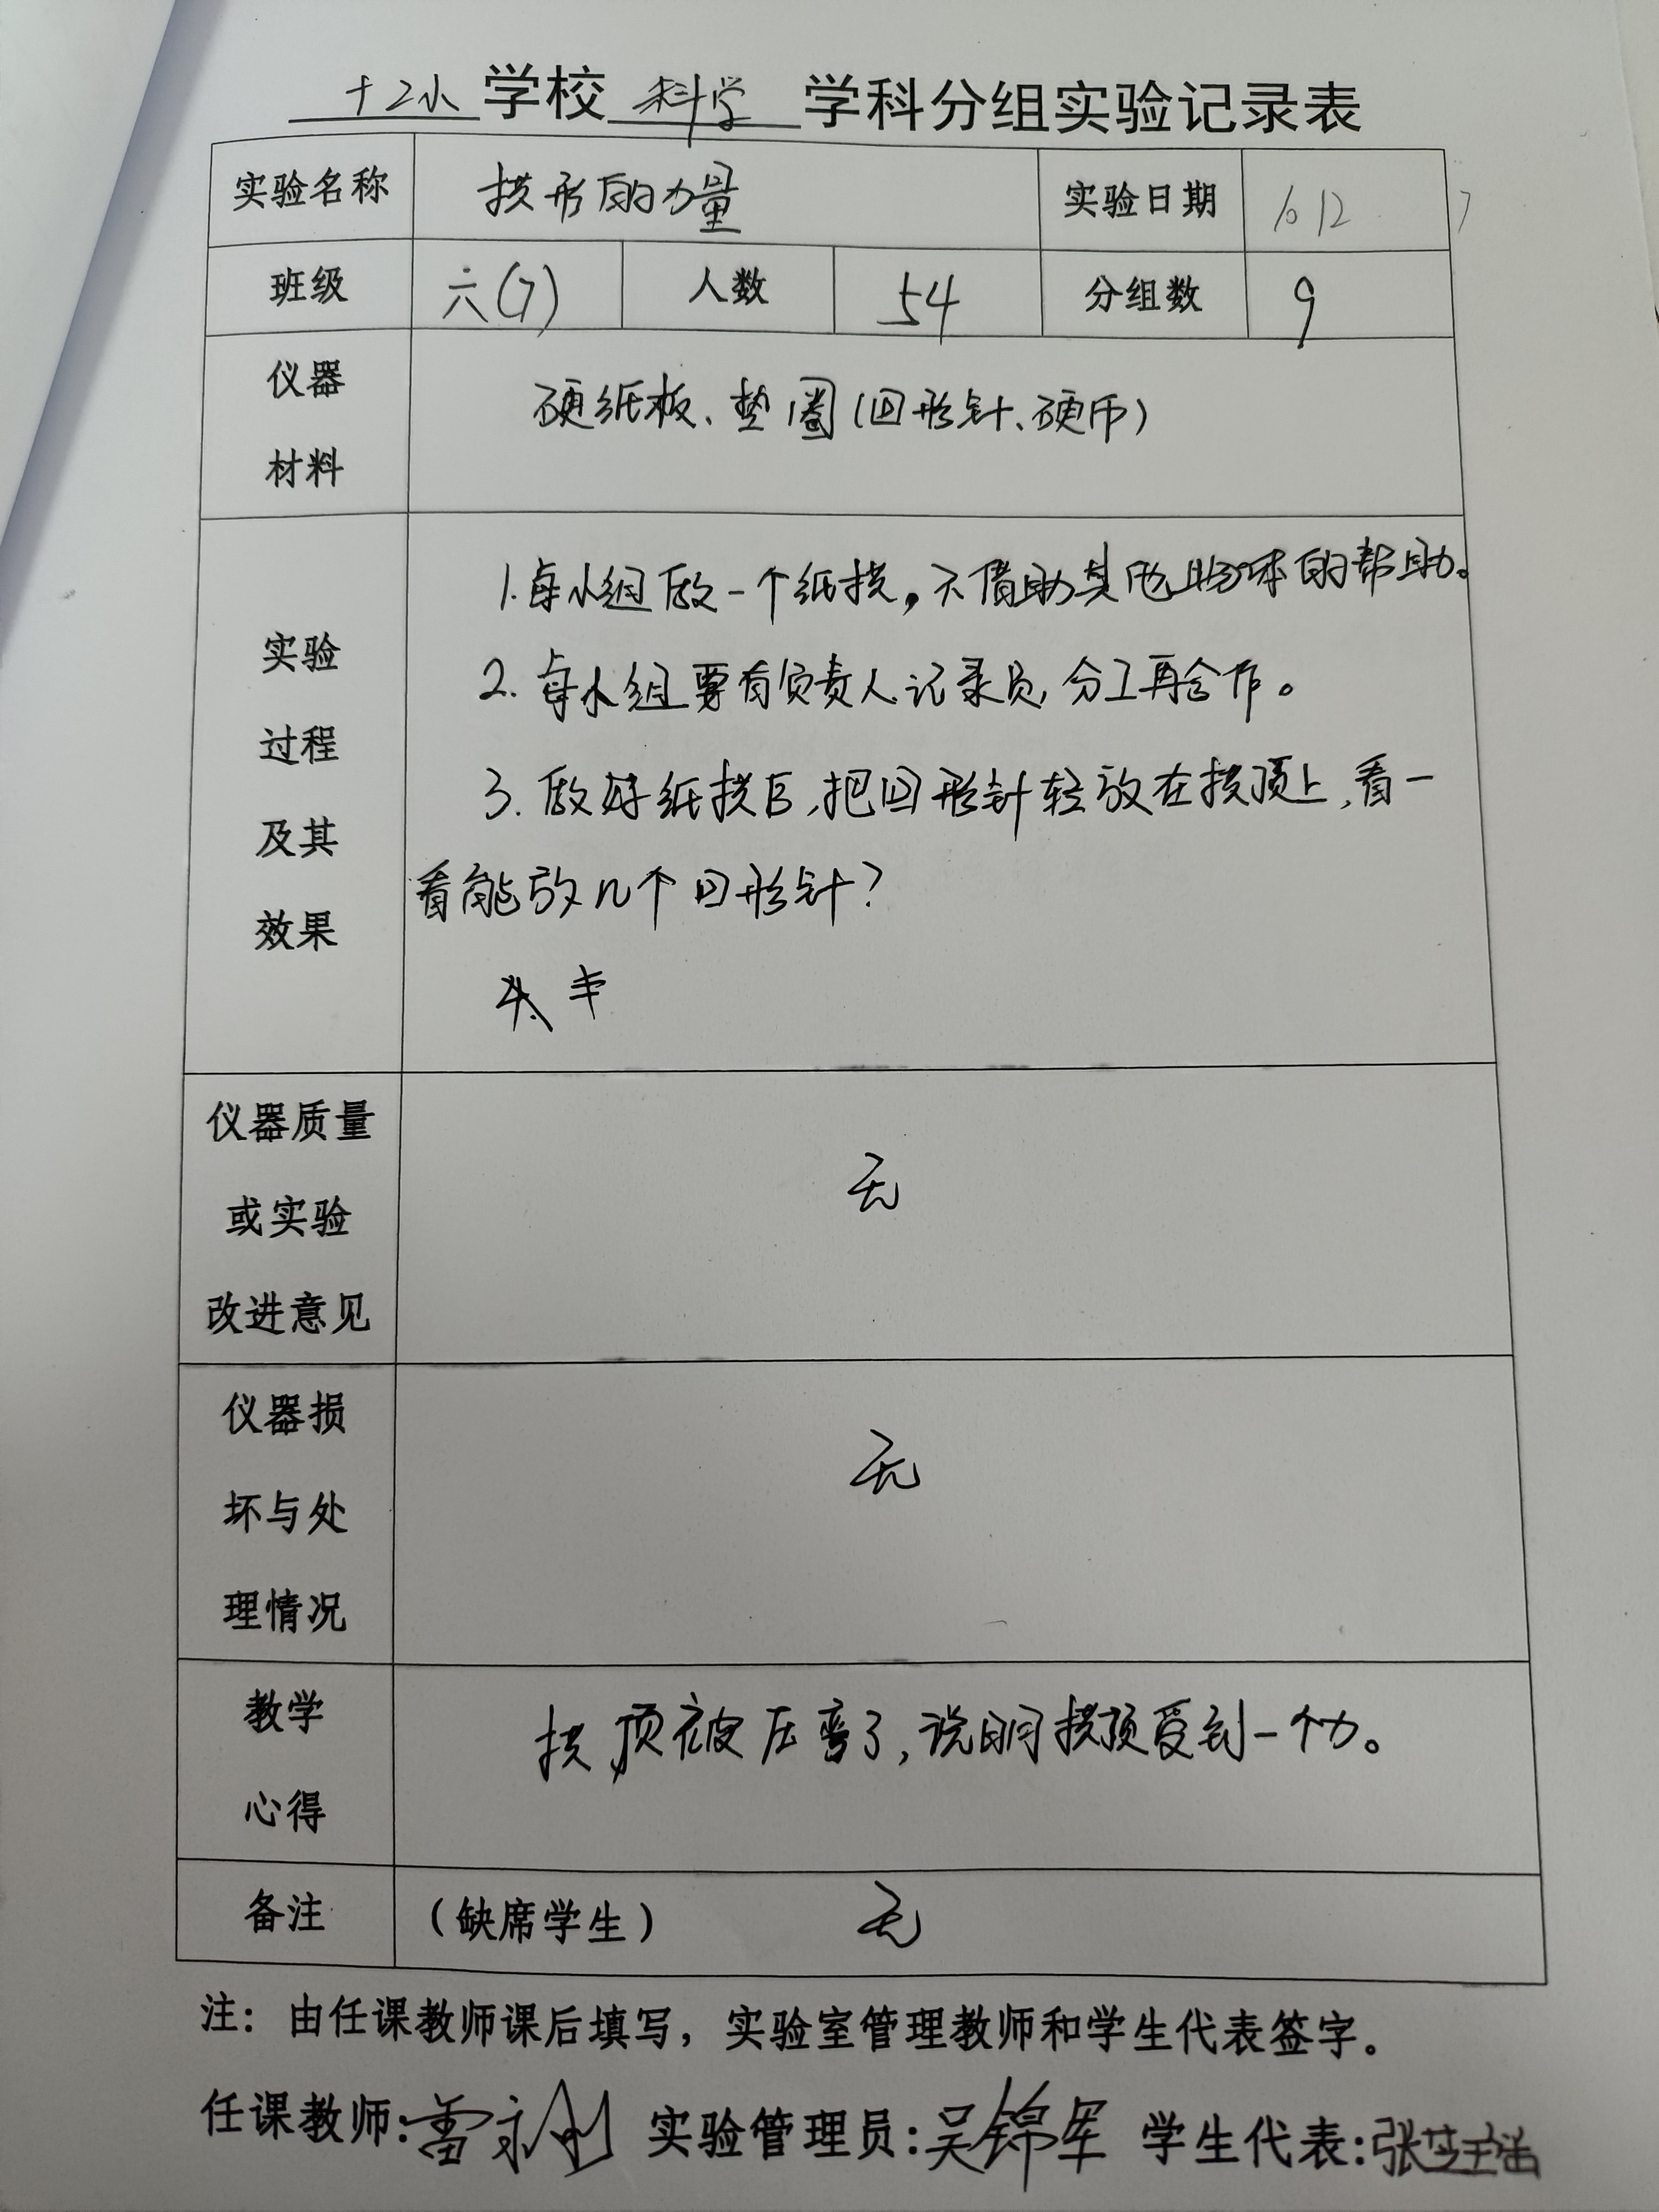 十2小 学校 科学 学科分组实验记录表
实验名称 拱形的力量 实验日期 10 12
班级 六(7) 人数 54 分组数 9
仪器
材料
硬纸板、垫圈(回形针、硬币)
实验
过程
及其
效果
1.每小组做一个纸拱,不借助其他物体的帮助。
2.每小组要有负责人记录员,分工再合作。
3.做好纸拱后,把回形针轻放在拱顶上,看一
看能放几个回形针?
仪器质量
或实验
改进意见
无
仪器损
坏与处
理情况
无
教学
心得
拱顶被压弯了,说明拱顶受到一个力。
备注 (缺席学生) 无
注:由任课教师课后填写,实验室管理教师和学生代表签字。
任课教师:雷永刚 实验管理员:吴锦军 学生代表:张芷